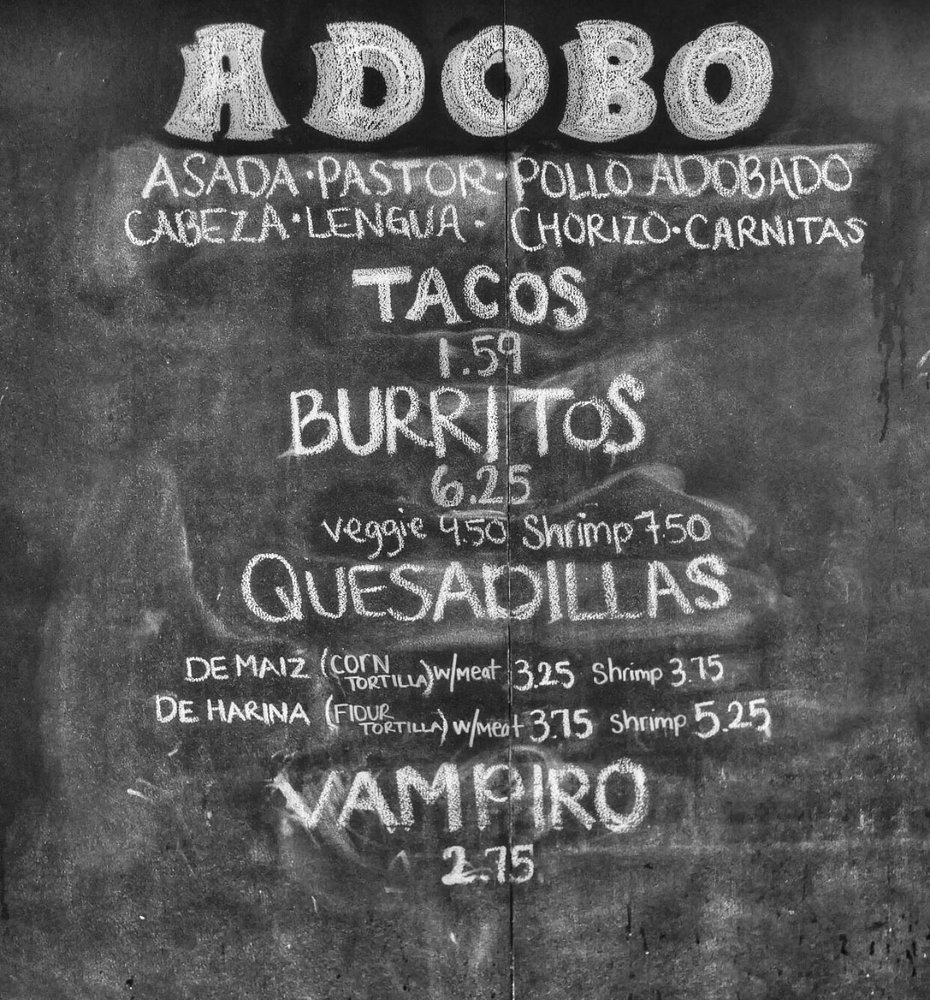 ADOBO
ASADA · PASTOR · POLLO ADOBADO
CABEZA · LENGUA · CHORIZO · CARNITAS
TACOS
1.59
BURRITOS
6.25
veggie 9.50 Shrimp 7.50
QUESADILLAS
DE MAIZ (CORN TORTILLA) w/Meat 3.25 Shrimp 3.75
DE HARINA (FLOUR TORTILLA) w/Meat 3.75 Shrimp 5.25
VAMPIRO
2.75